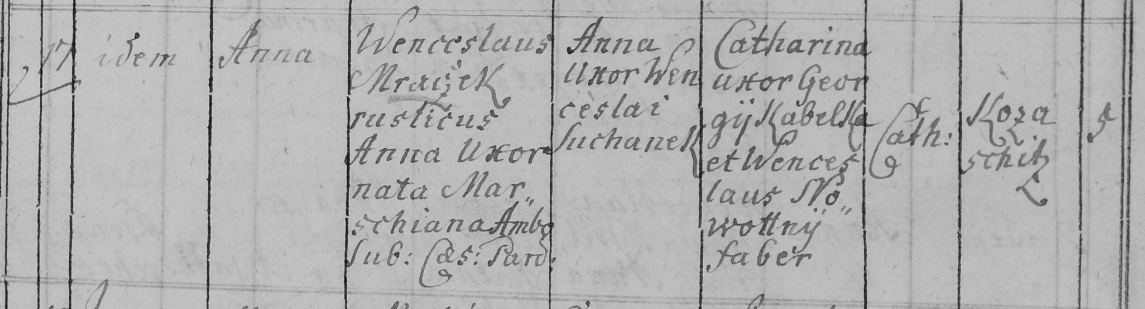 17
idem
Anna
Wenceslaus
Mraczek
rusticus
Anna Uxor
nata Mar„
schiana Ambo
Sub: Cæs: Pard:
Anna
Uxor Wen
ceslai
Suchanek
Catharina
uxor Geor
gij Kabelka
et Wences
laus No„
wottnij
faber
Cath:
Koza
schitz
5